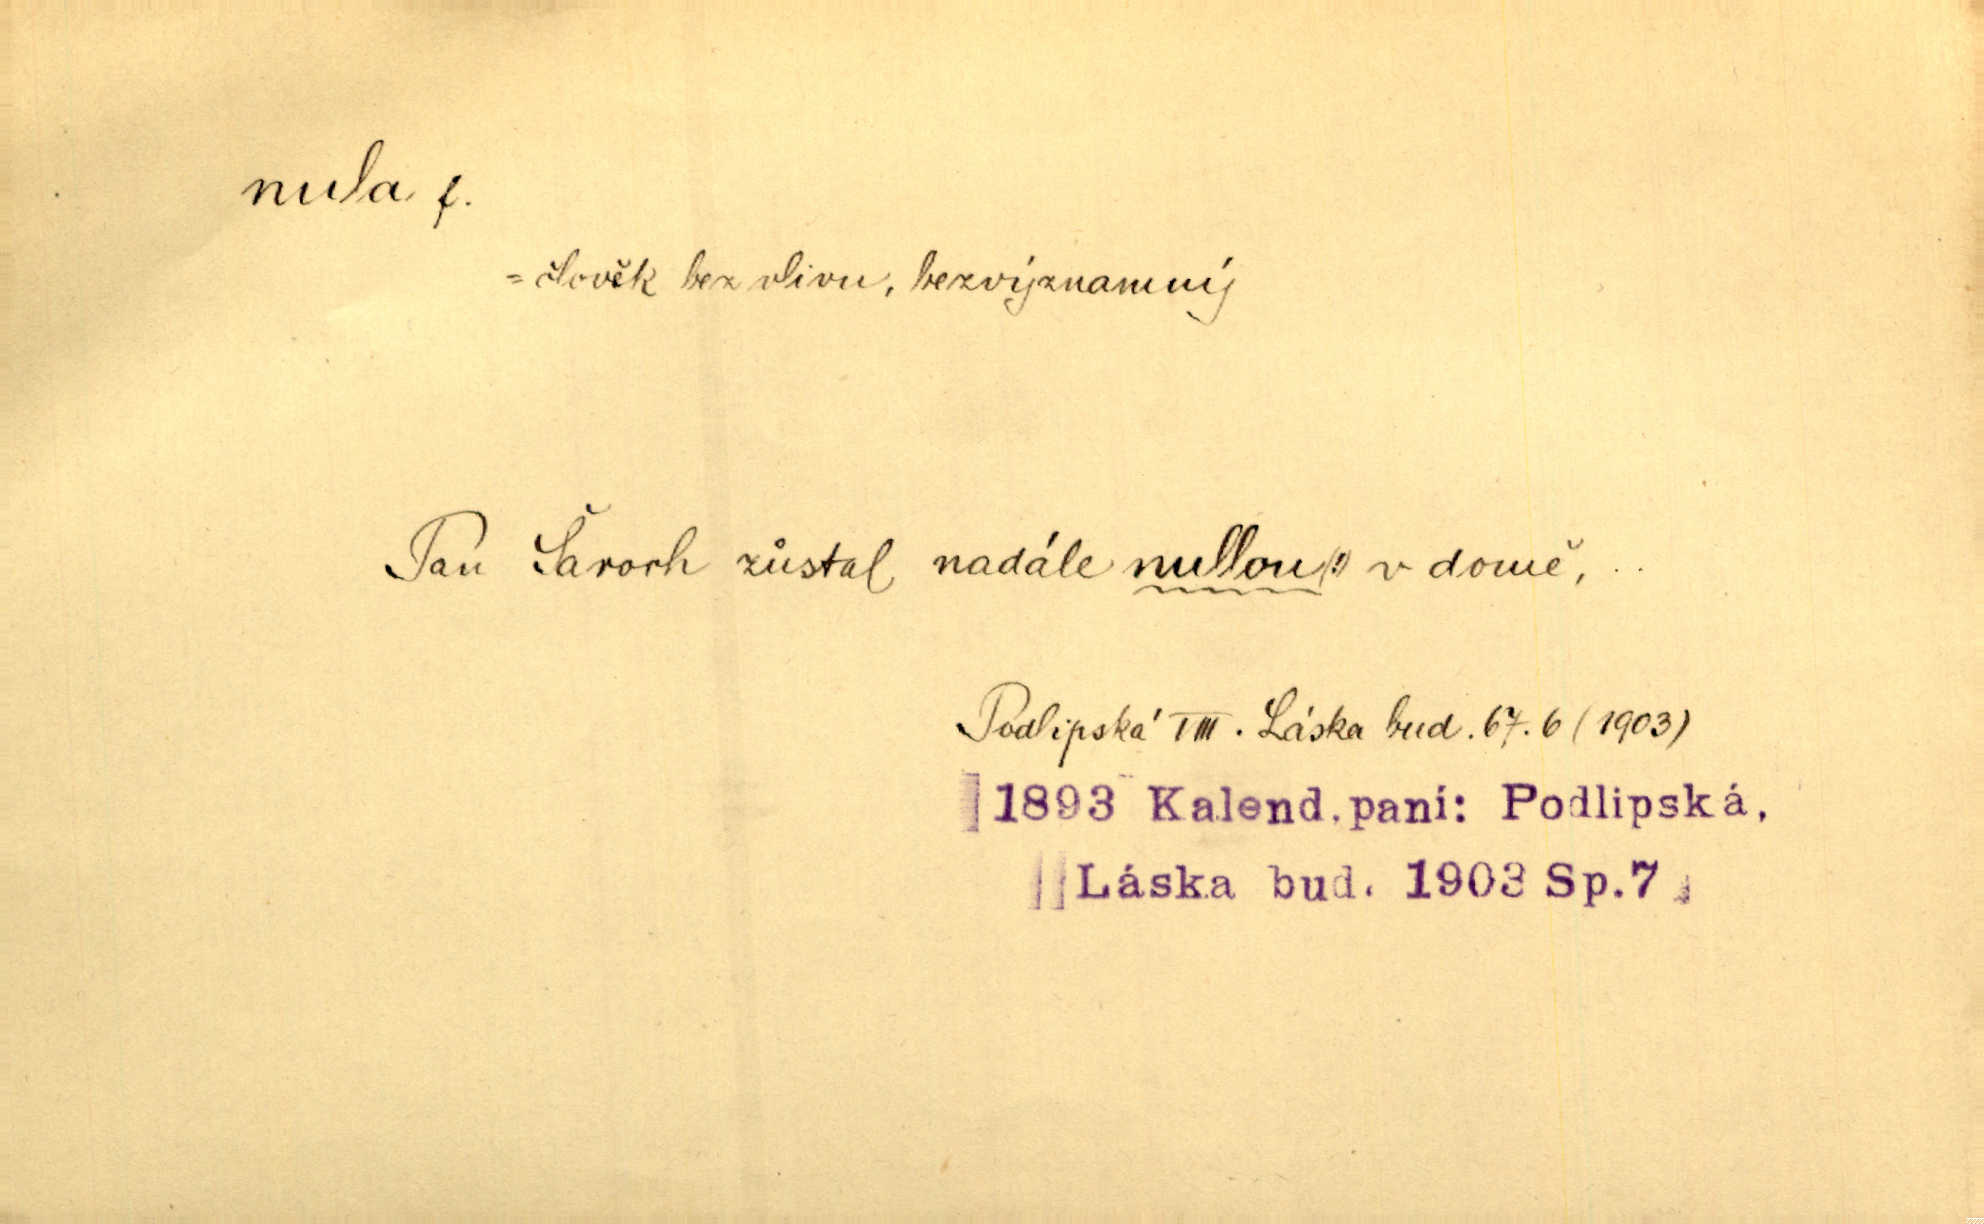 nula f.
= člověk bez vlivu, bezvýznamný
Pan Šaroch zůstal nadále nullou(!) v domě, ..
Podlipská VIII. Láska bud. 67. 6 (1903)
1893 Kalend.paní: Podlipská,
Láska bud. 1903 Sp.7